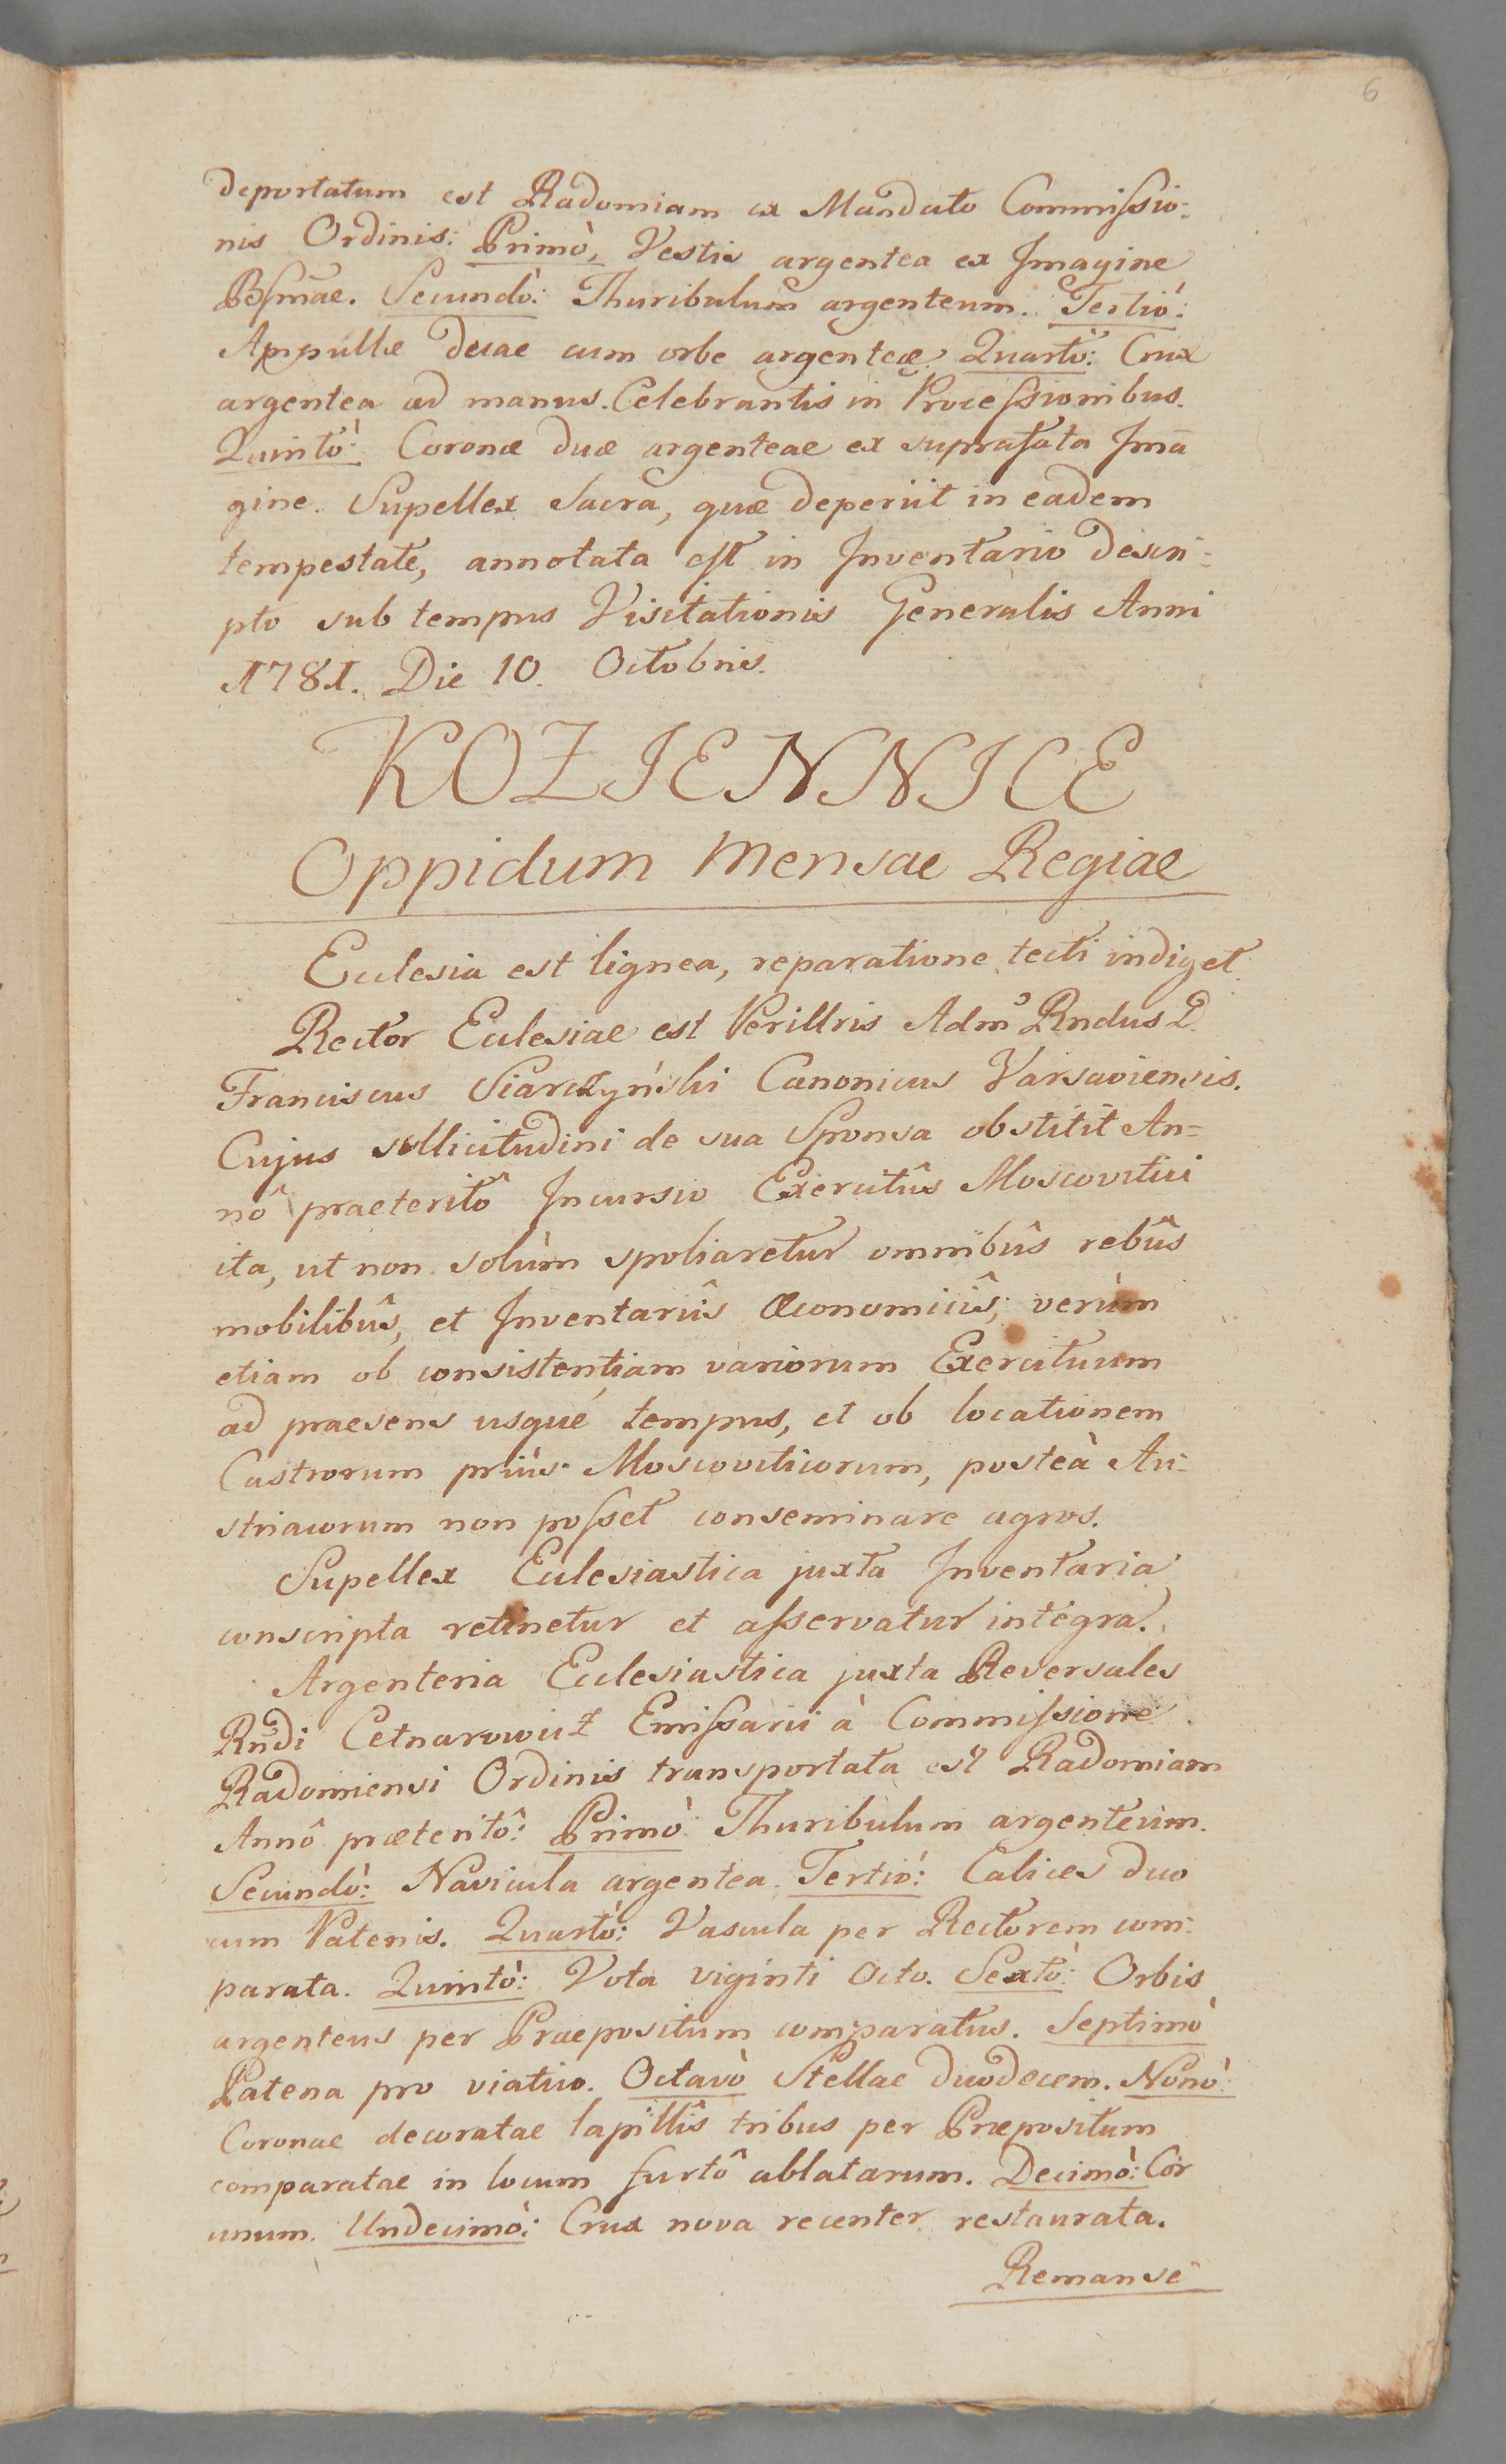 6
deportatum est Radomiam ex Mandato Commißio:
nis Ordinis: Primò, Vestis argentea ex Jmagine
Bſmae. Secundò: Thuribulum argenteum. Tertiò:
Appullæ duae cum orbe argenteæ. Quartò: Crux
argentea ad manus Celebrantis in Proceſsionibus.
Quintò: Coronæ duæ argenteae ex suprafata Jma
gine. Supellex Sacra, quæ deperiit in eadem
tempestate, annotata eſt in Jnventario descri=
pto sub tempus Visitationis Generalis Anni
1781. Die 10. Octobris.
KOZIENNICE
Oppidum Mensae Regiae
Ecclesia est lignea, reparatione tecti indiget.
Rector Ecclesiae est Perillris Adm Rndus D.
Franciscus Siarczyński Canonicus Varsaviensis.
Cujus sollicitudini de sua Sponsa obstitit An=
nô praeteritô Jncursio Exercitûs Moscovitici
ita, ut non solùm spoliaretur omnibûs rebûs
mobilibûs, et Jnventariîs Œconomicîs; verùm
etiam ob consistentiam variorum Exercituum
ad praesens usque tempus, et ob locationem
Castrorum priùs Moscoviticorum, posteà Au=
striacorum non poſset conseminare agros.
Supellex Ecclesiastica juxta Jnventaria
conscripta retinetur et aſservatur integra.
Argenteria Ecclesiastica juxta Reversales
Rndi Cetnarowicz Emiſsarii à Commiſsione
Radomiensi Ordinis transportata est Radomiam
Annô præteritô: Primò Thuribulum argenteum.
Secundò: Navicula argentea. Tertiò: Calices duo
cum Patenis. Quartò: Vascula per Rectorem com=
parata. Quintò: Vota viginti octo. Sextò: Orbis
argenteus per Praepositum comparatus. Septimò
Patena pro viatico. Octavò Stellae duodecem. Nonò
Coronae decoratae lapillîs tribus per Præpositum
comparatae in locum furtô ablatarum. Decimò: Cor
unum. Undecimò: Crux nova recenter restaurata.
Remanse